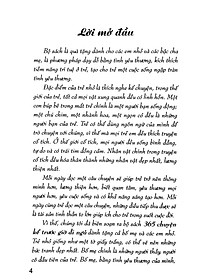 Lời mở đầu
Bộ sách là quà tặng dành cho các em nhỏ và các bậc cha
mẹ, là phương pháp dạy dỗ bằng tình yêu thương, kích thích
tiềm năng trí tuệ ở trẻ, tạo cho trẻ một cuộc sống ngập tràn
tình yêu thương.
Đặc điểm của trẻ nhỏ là thích nghe kể chuyện, trong thế giới
của trẻ, tất cả mọi vật xung quanh đều có linh hồn. Một
em búp bê trong mắt trẻ chính là một người bạn sống động,
một chú chim, một nhành hoa, một ngọn cỏ, đều là những
người bạn của trẻ. Trẻ có thể dùng ngôn ngữ của mình để
trò chuyện với chúng, vì thế mà trẻ em đã thích truyện
cổ tích. Ở thế giới cổ tích, mọi người đều sống bình đẳng,
tự do và có trái tim đồng cảm. Nhân vật trong truyện cổ tích
đều hóa thân thành những nhân vật đẹp nhất, lương thiện
nhất.
Mỗi ngày đọc một câu chuyện sẽ giúp trẻ trở nên thông
minh hơn, lương thiện hơn, biết quan tâm, yêu thương mọi
người hơn, yêu cuộc sống và có khả năng sáng tạo hơn. Mỗi
ngày cùng trẻ đọc một câu chuyện, những điều tiếp thu được sẽ
là tài sản tinh thần to lớn giúp ích cho trẻ trong suốt cuộc đời.
Vì thế, chúng tôi đã biên soạn ra bộ sách 365 chuyện
kể trước giờ đi ngủ dành tặng cả bố mẹ và các em nhỏ.
Trẻ nhỏ giống như một tờ giấy trắng, có thể vẽ nên những
bức tranh đẹp nhất. Bố mẹ chính là những người thầy người
cô đầu tiên của trẻ. Bố mẹ, bằng tình yêu thương của mình,
4